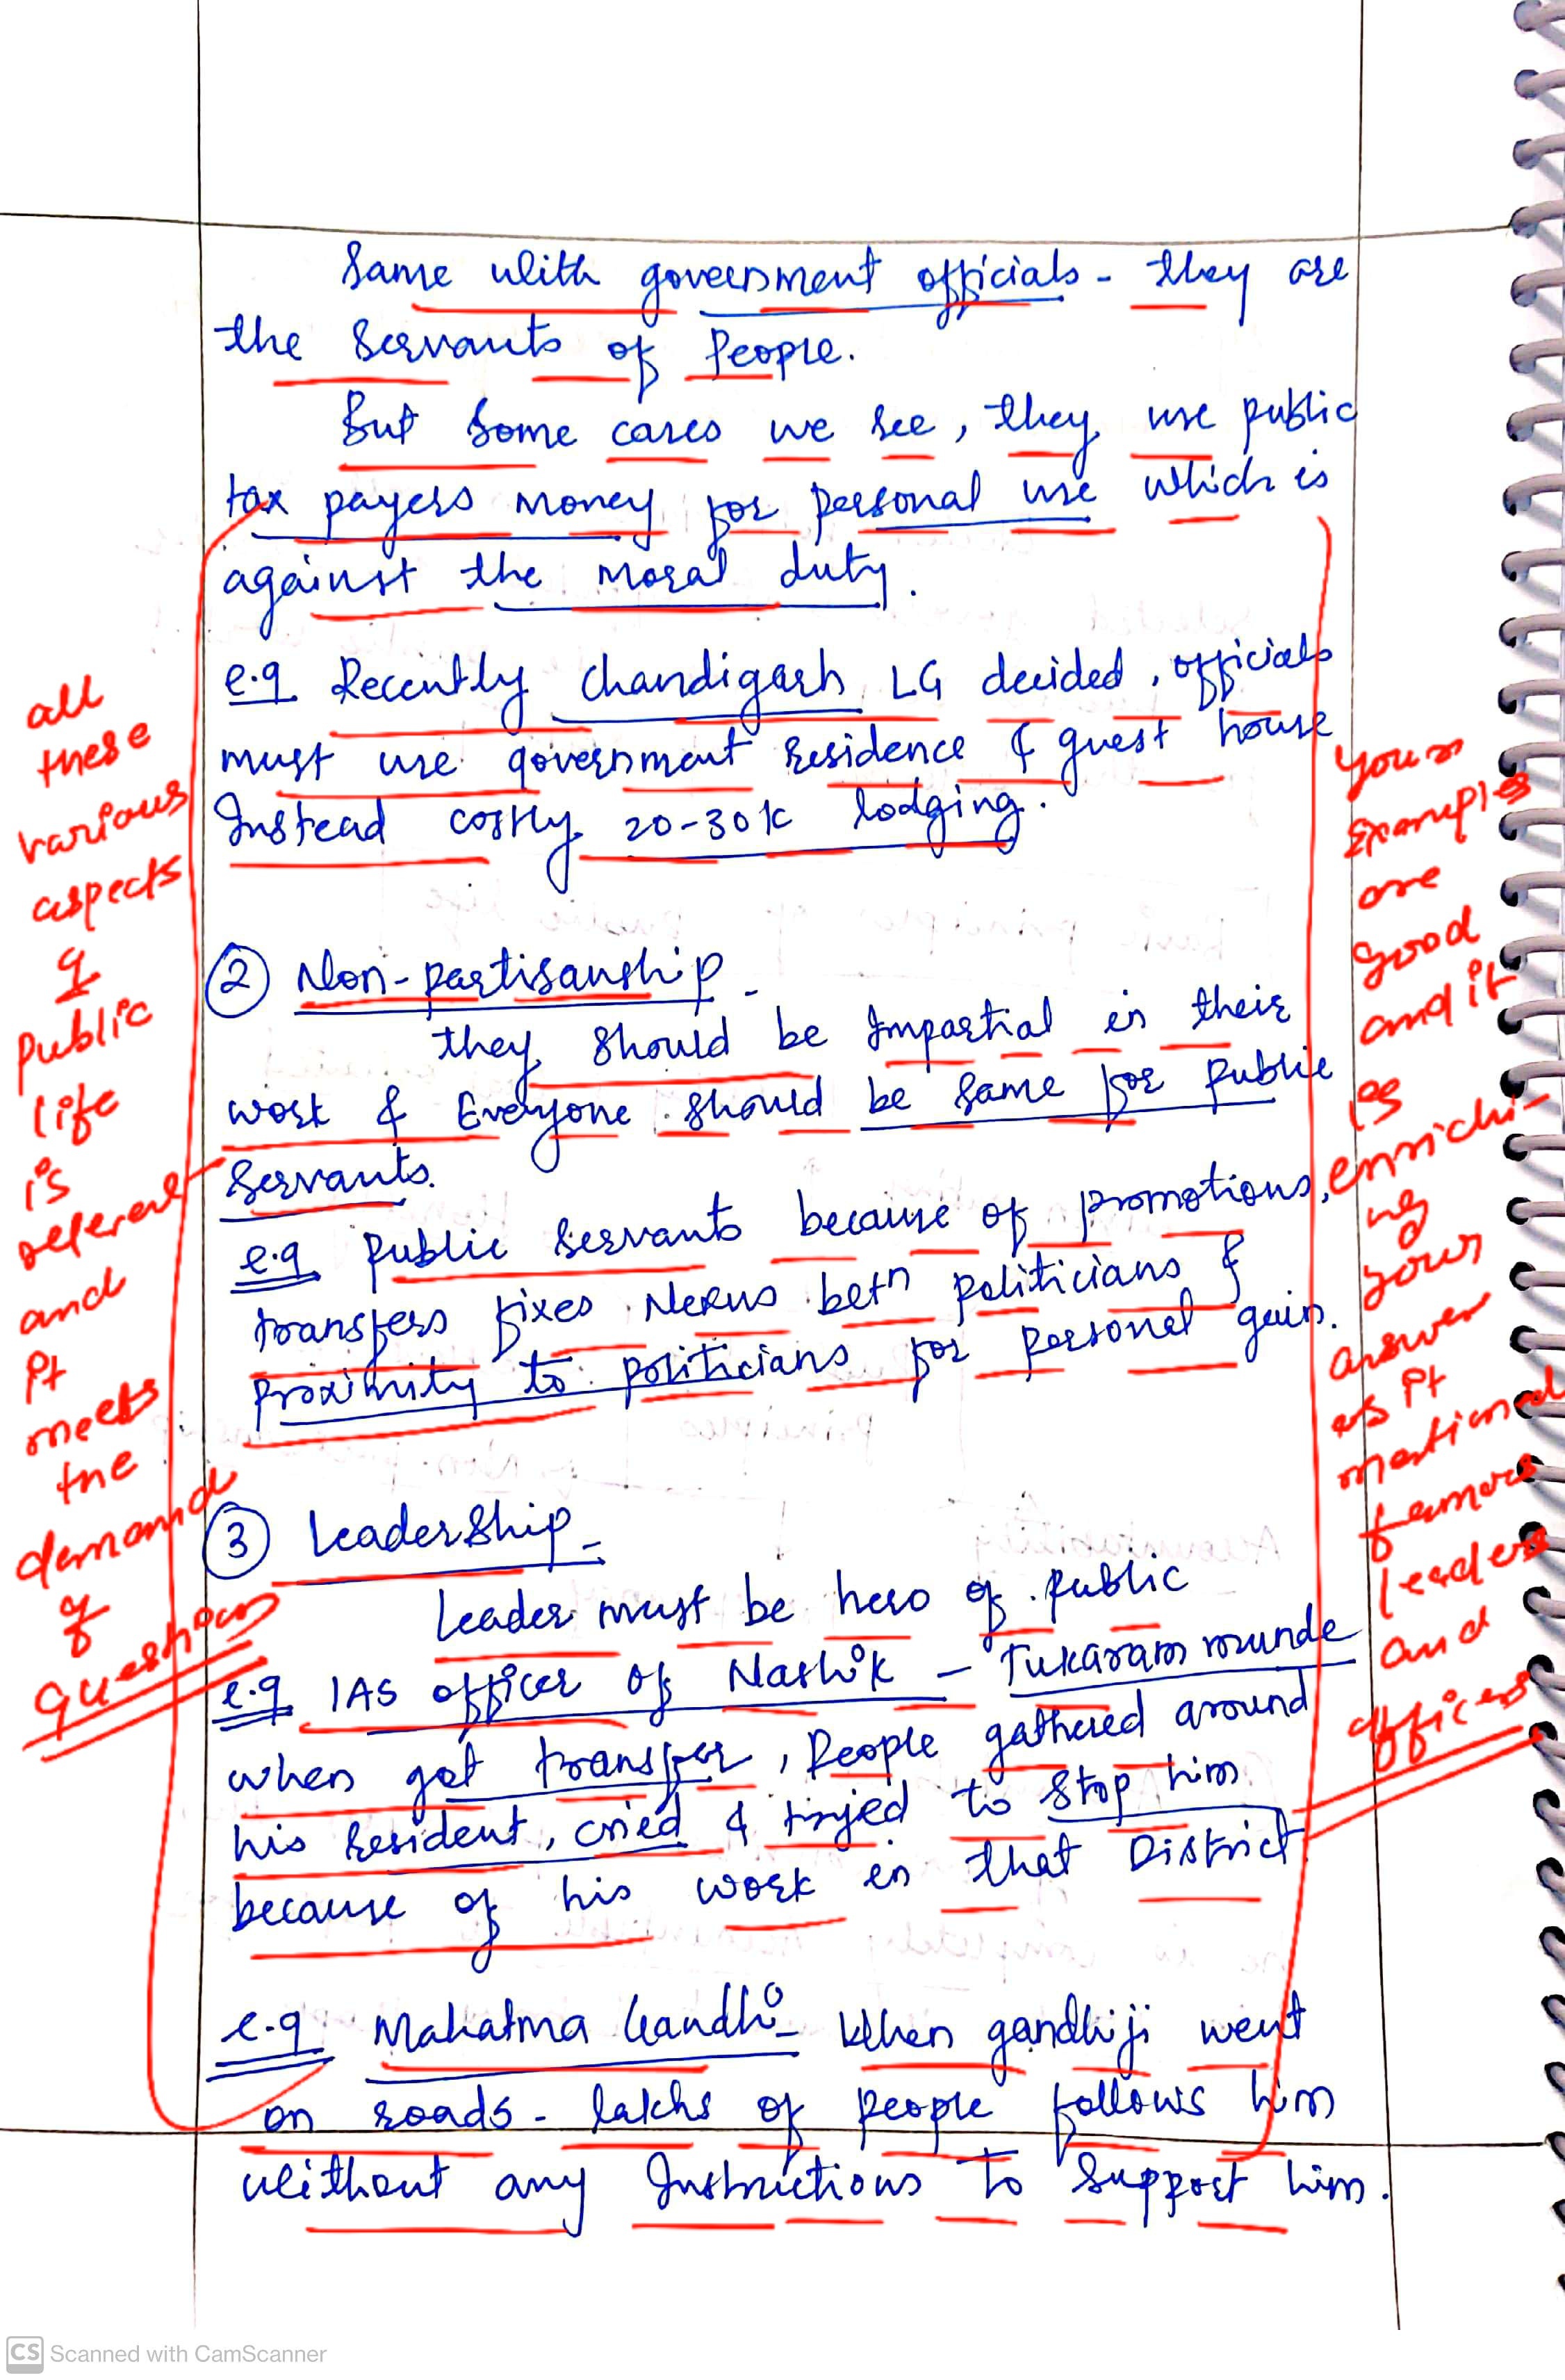 Same with government officials - they are
the Servants of People.
But Some cases we see, they use public
tax payers money for personal use which is
against the moral duty.
e.g Recently Chandigarh LG decided, officials
must use government residence & guest house
Instead costly 20-30k lodging.
② Non-partisanship -
they should be Impartial in their
work & Everyone should be same for public
Servants.
e.g Public Servants because of promotions,
transfers fixes Nexus betn politicians &
proximity to politicians for personal gain.
③ Leadership -
Leader must be hero of public
e.g IAS officer of Nashik - Tukaram munde
when got transfer, People gathered around
his resident, cried & tryed to stop him
because of his work in that District.
e.g Mahatma Gandhi - When gandhiji went
on roads - lakhs of people follows him
without any Instructions to Support him.
all
these
various
aspects
of
public
life
is
referent
and
it
meets
the
demand
of
question
your
Examples
are
good
and it
is
enrichi-
ng
your
answer
as it
mentioned
famous
leaders
and
officers
CS Scanned with CamScanner